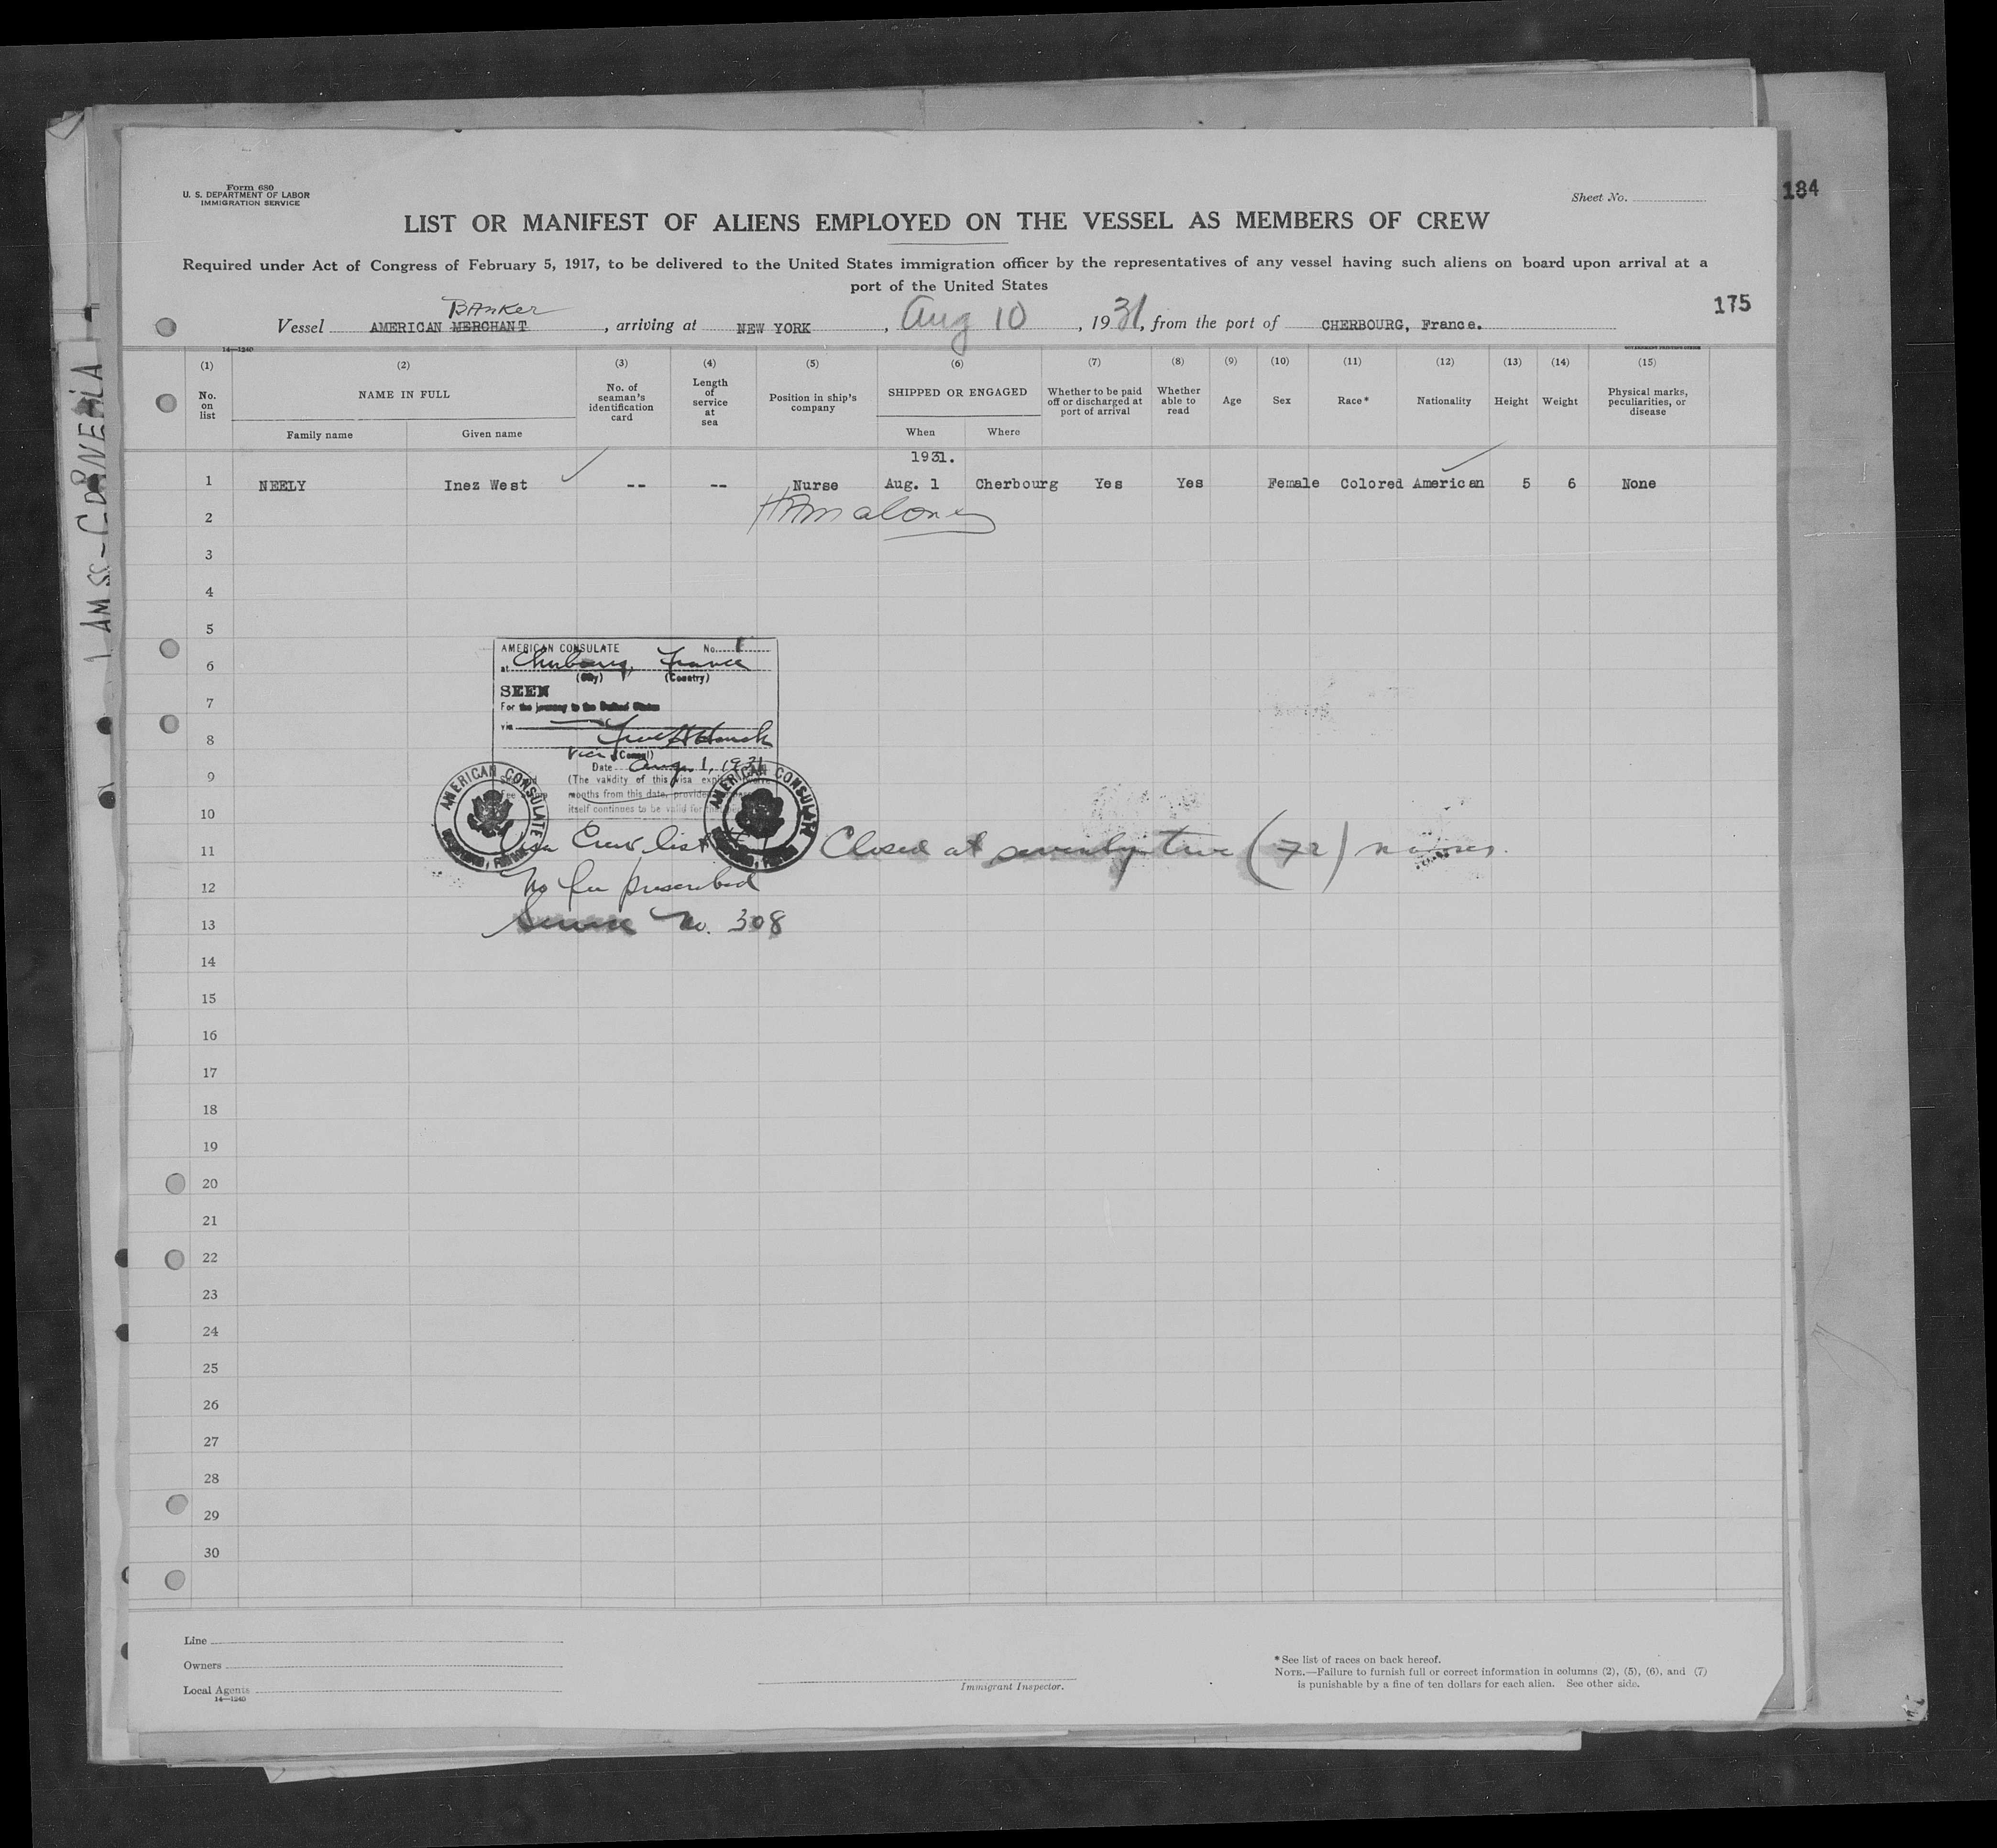 184
Form 680
U. S. DEPARTMENT OF LABOR
IMMIGRATION SERVICE
Sheet No.
LIST OR MANIFEST OF ALIENS EMPLOYED ON THE VESSEL AS MEMBERS OF CREW
Required under Act of Congress of February 5, 1917, to be delivered to the United States immigration officer by the representatives of any vessel having such aliens on board upon arrival at a
port of the United States
175
BAnker
Vessel AMERICAN MERCHANT, arriving at NEW YORK, Aug 10, 1931, from the port of CHERBOURG, France.
14—1240
(1) (2) (3) (4) (5) (6) (7) (8) (9) (10) (11) (12) (13) (14) (15)
No. on list
NAME IN FULL
Family name
Given name
No. of seaman's identification card
Length of service at sea
Position in ship's company
SHIPPED OR ENGAGED
When
Where
Whether to be paid off or discharged at port of arrival
Whether able to read
Age
Sex
Race*
Nationality
Height
Weight
Physical marks, peculiarities, or disease
1931.
1 NEELY Inez West -- -- Nurse Aug. 1 Cherbourg Yes Yes Female Colored American 5 6 None
2 HRMaloney
3
4
5
AMERICAN CONSULATE No. 1
6
at Cherbourg, France
(City) (Country)
SEEN
7
For the journey to the United States
via
8
Vice (Consul)
Date Aug. 1, 1931
9
(The validity of this visa
months from this date, provided
itself continues to be valid for
AMERICAN CONSULATE
AMERICAN CONSULATE
10
11
Crew list
Closed at seventy two (72) names.
12
No fee prescribed
13
Service No. 308
14
15
16
17
18
19
20
21
22
23
24
25
26
27
28
29
30
Line
Owners
Local Agents
14—1240
Immigrant Inspector.
*See list of races on back hereof.
NOTE.—Failure to furnish full or correct information in columns (2), (5), (6), and (7)
is punishable by a fine of ten dollars for each alien. See other side.